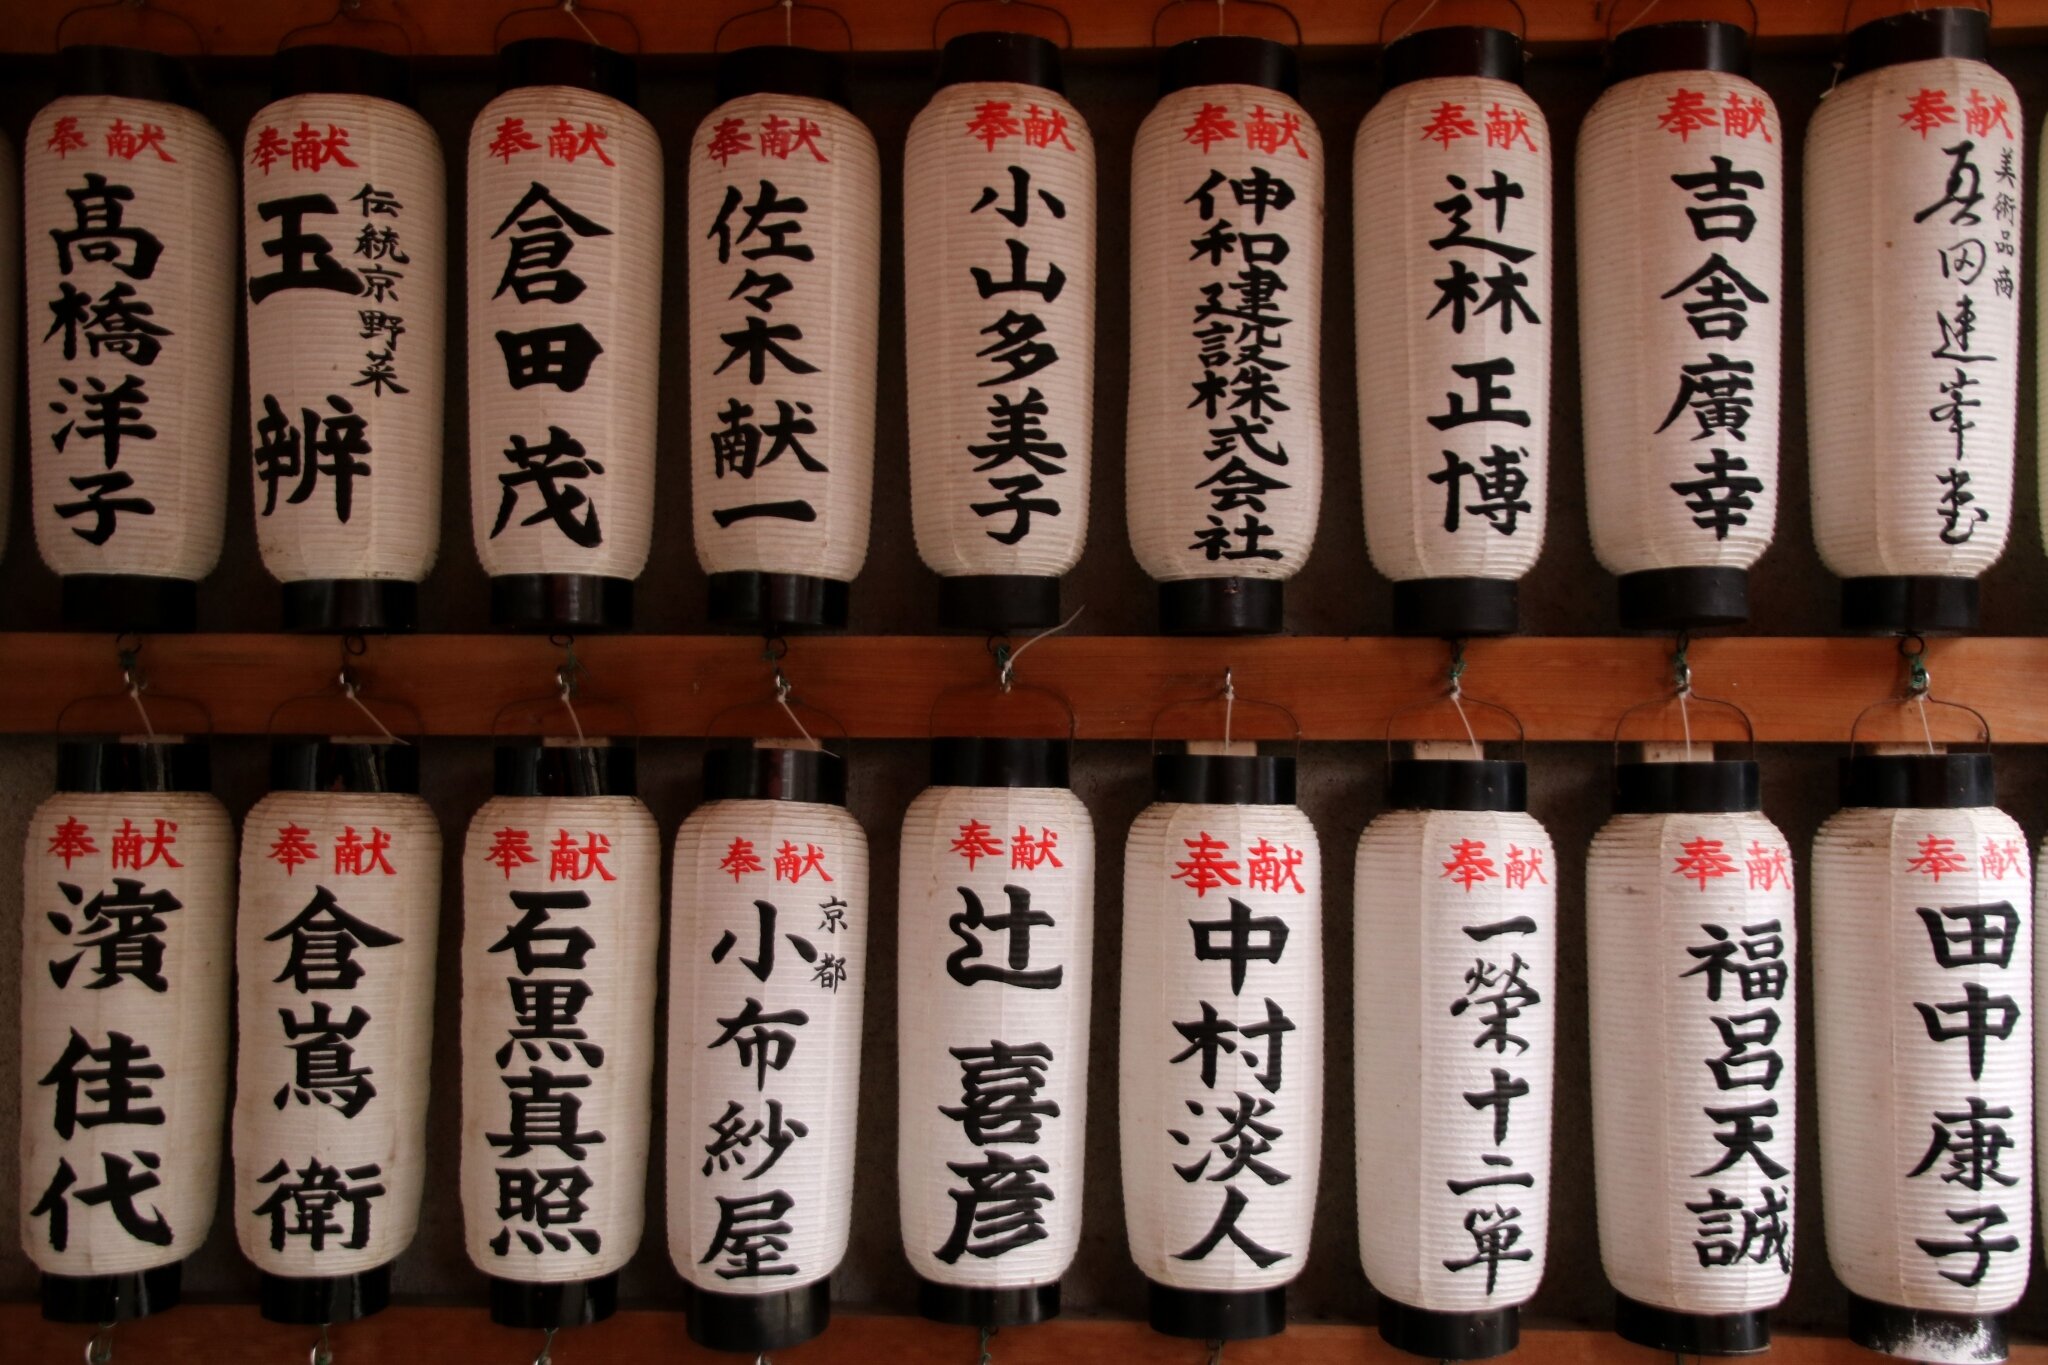 奉献
高橋洋子
奉献
伝統京野菜
玉辨
奉献
倉田茂
奉献
佐々木献一
奉献
小山多美子
奉献
伸和建設株式会社
奉献
辻林正博
奉献
吉舎廣幸
奉献
美術品商
蓮峯堂
奉献
濱佳代
奉献
倉嶌衛
奉献
石黒真照
奉献
京都
小布紗屋
奉献
辻喜彦
奉献
中村淡人
奉献
一榮十二単
奉献
福呂天誠
奉献
田中康子